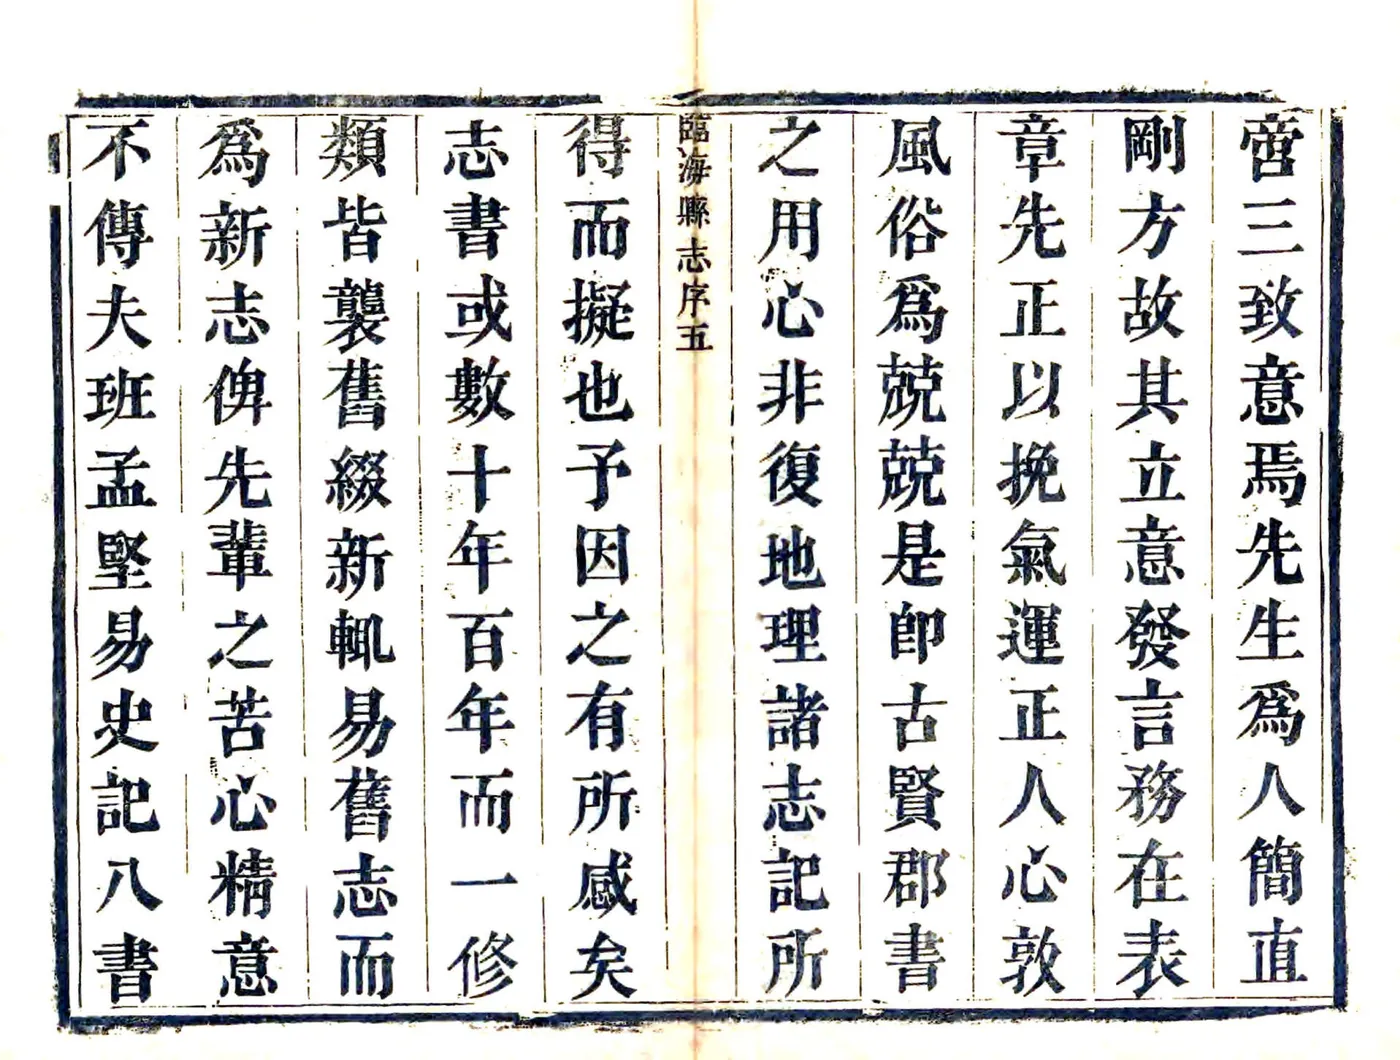 啻三致意焉先生爲人簡直
剛方故其立意發言務在表
章先正以挽氣運正人心敦
風俗爲兢兢是卽古賢郡書
之用心非復地理諸志記所
臨海縣志序五
得而擬也予因之有所感矣
志書或數十年百年而一修
類皆襲舊綴新輒易舊志而
爲新志俾先輩之苦心精意
不傳夫班孟堅易史記八書